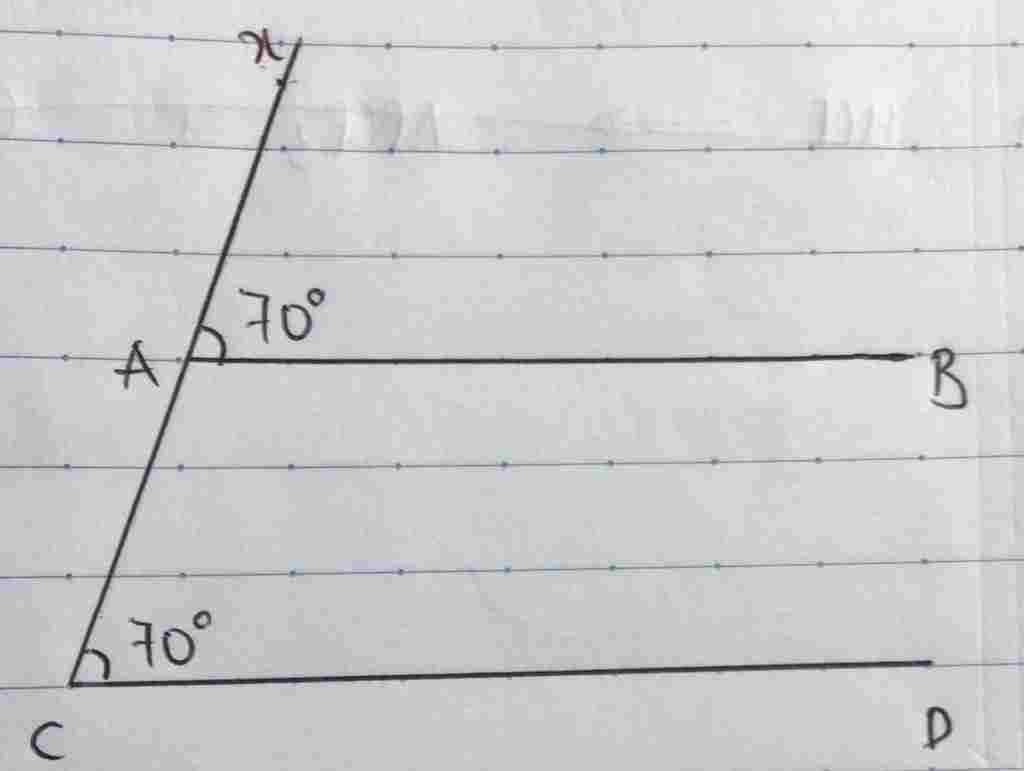 x
70°
A
B
70°
C
D